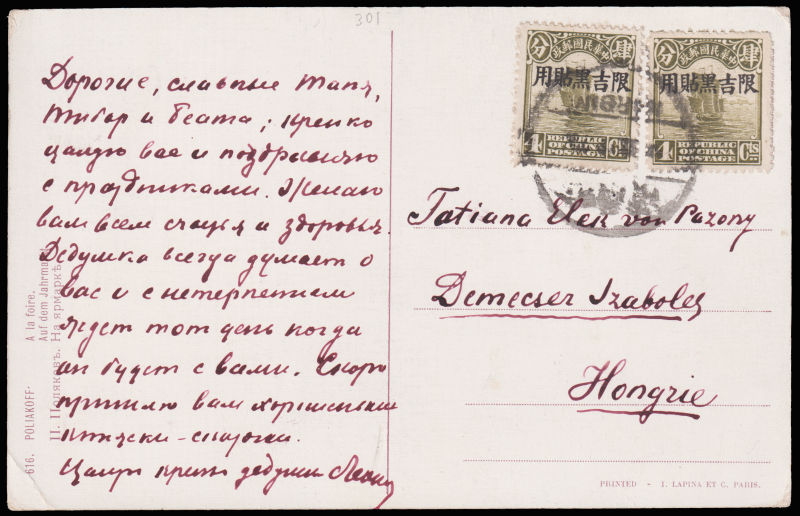 301
Дорогие, славные Таня,
Тибор и Беата; крепко
целую вас и поздравляю
с праздниками. Желаю
вам всем счастья и здоровья.
Дедушка всегда думает о
вас и с нетерпением
ждет тот день когда
он будет с вами. Скоро
пришлю вам хорошенькие
китайски
Целую крепко дедушка
616. POLIAKOFF-
A la foire.
Auf dem Jahrmarkt
П. Поляковъ. На ярмаркѣ
分 政郵國民華中 肆
用貼黑吉限
4 REPUBLIC OF CHINA POSTAGE Cts
分 政郵國民華中 肆
用貼黑吉限
4 REPUBLIC OF CHINA POSTAGE Cts
HARBIN
Tatiana Elek von Pazony
Demecser Szabolcs
Hongrie
PRINTED - I. LAPINA ET C. PARIS.